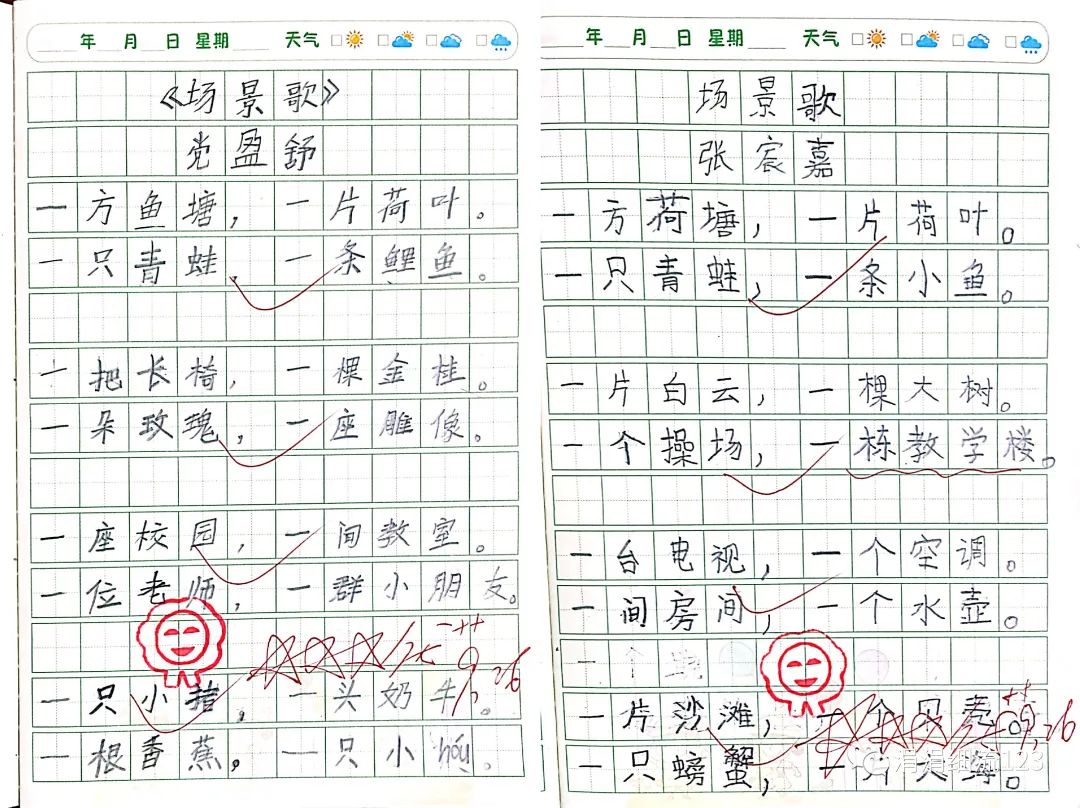 年 月 日 星期 天气
《场景歌》
党盈舒
一方鱼塘,一片荷叶。
一只青蛙,一条鲤鱼。
一把长椅,一棵金桂。
一朵玫瑰,一座雕像。
一座校园,一间教室。
一位老师,一群小朋友。
一只小猪,一头奶牛。
一根香蕉,一只小hóu。
9.26
年 月 日 星期 天气
场景歌
张宸嘉
一方荷塘,一片荷叶。
一只青蛙,一条小鱼。
一片白云,一棵大树。
一个操场,一栋教学楼。
一台电视,一个空调。
一间房间,一个水壶。
一片沙滩,一个贝壳。
一只螃蟹,一只
9.26
123